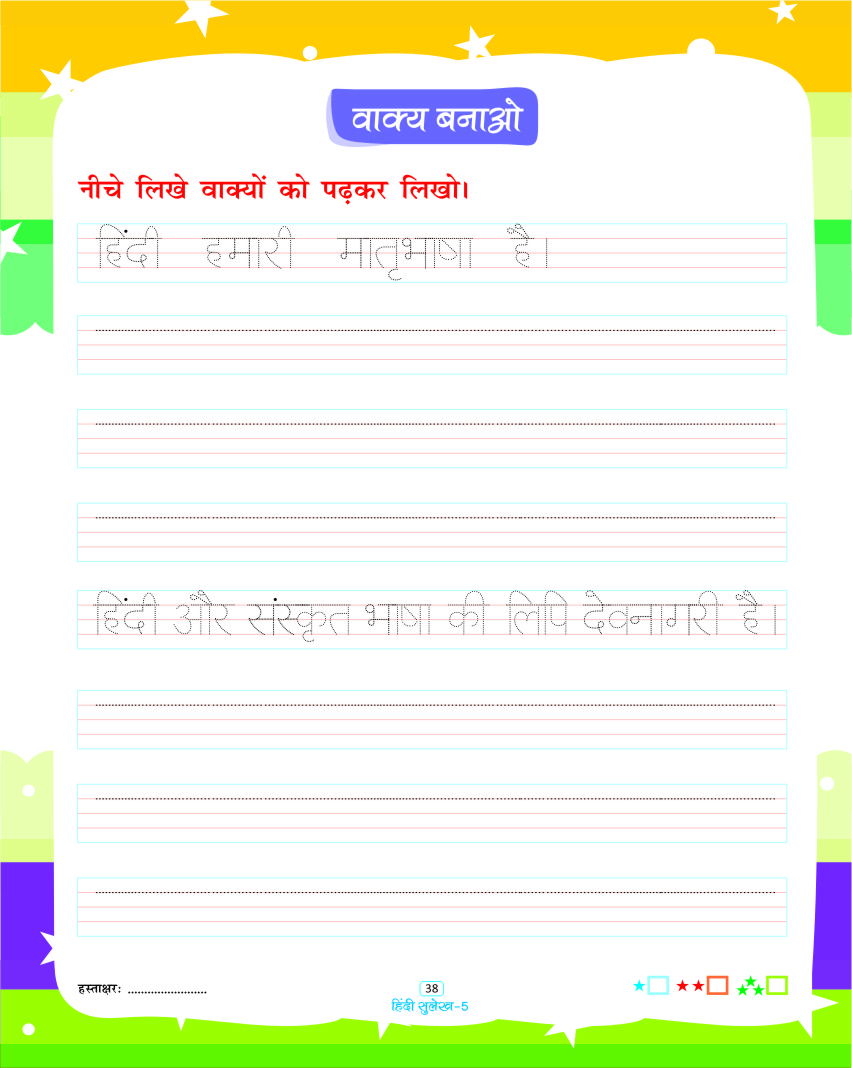 वाक्य बनाओ
नीचे लिखे वाक्यों को पढ़कर लिखो।
हिंदी हमारी मातृभाषा है।
हिंदी और संस्कृत भाषा की लिपि देवनागरी है।
हस्ताक्षरः ........................
38
हिंदी सुलेख-5